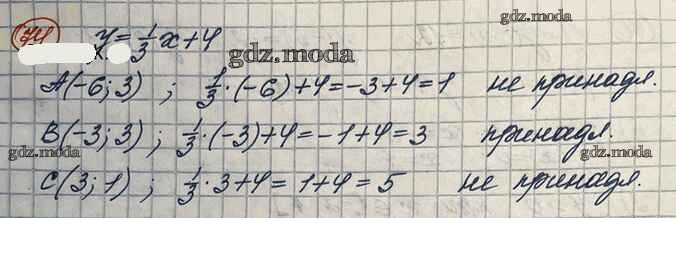 gdz.moda
74 y = 1/3 x + 4
gdz.moda
A(-6; 3) ; 1/3 · (-6) + 4 = -3 + 4 = 1 не принадл.
gdz.moda
B(-3; 3) ; 1/3 · (-3) + 4 = -1 + 4 = 3 принадл.
gdz.moda gdz.moda
C(3; 1) ; 1/3 · 3 + 4 = 1 + 4 = 5 не принадл.
gdz.moda